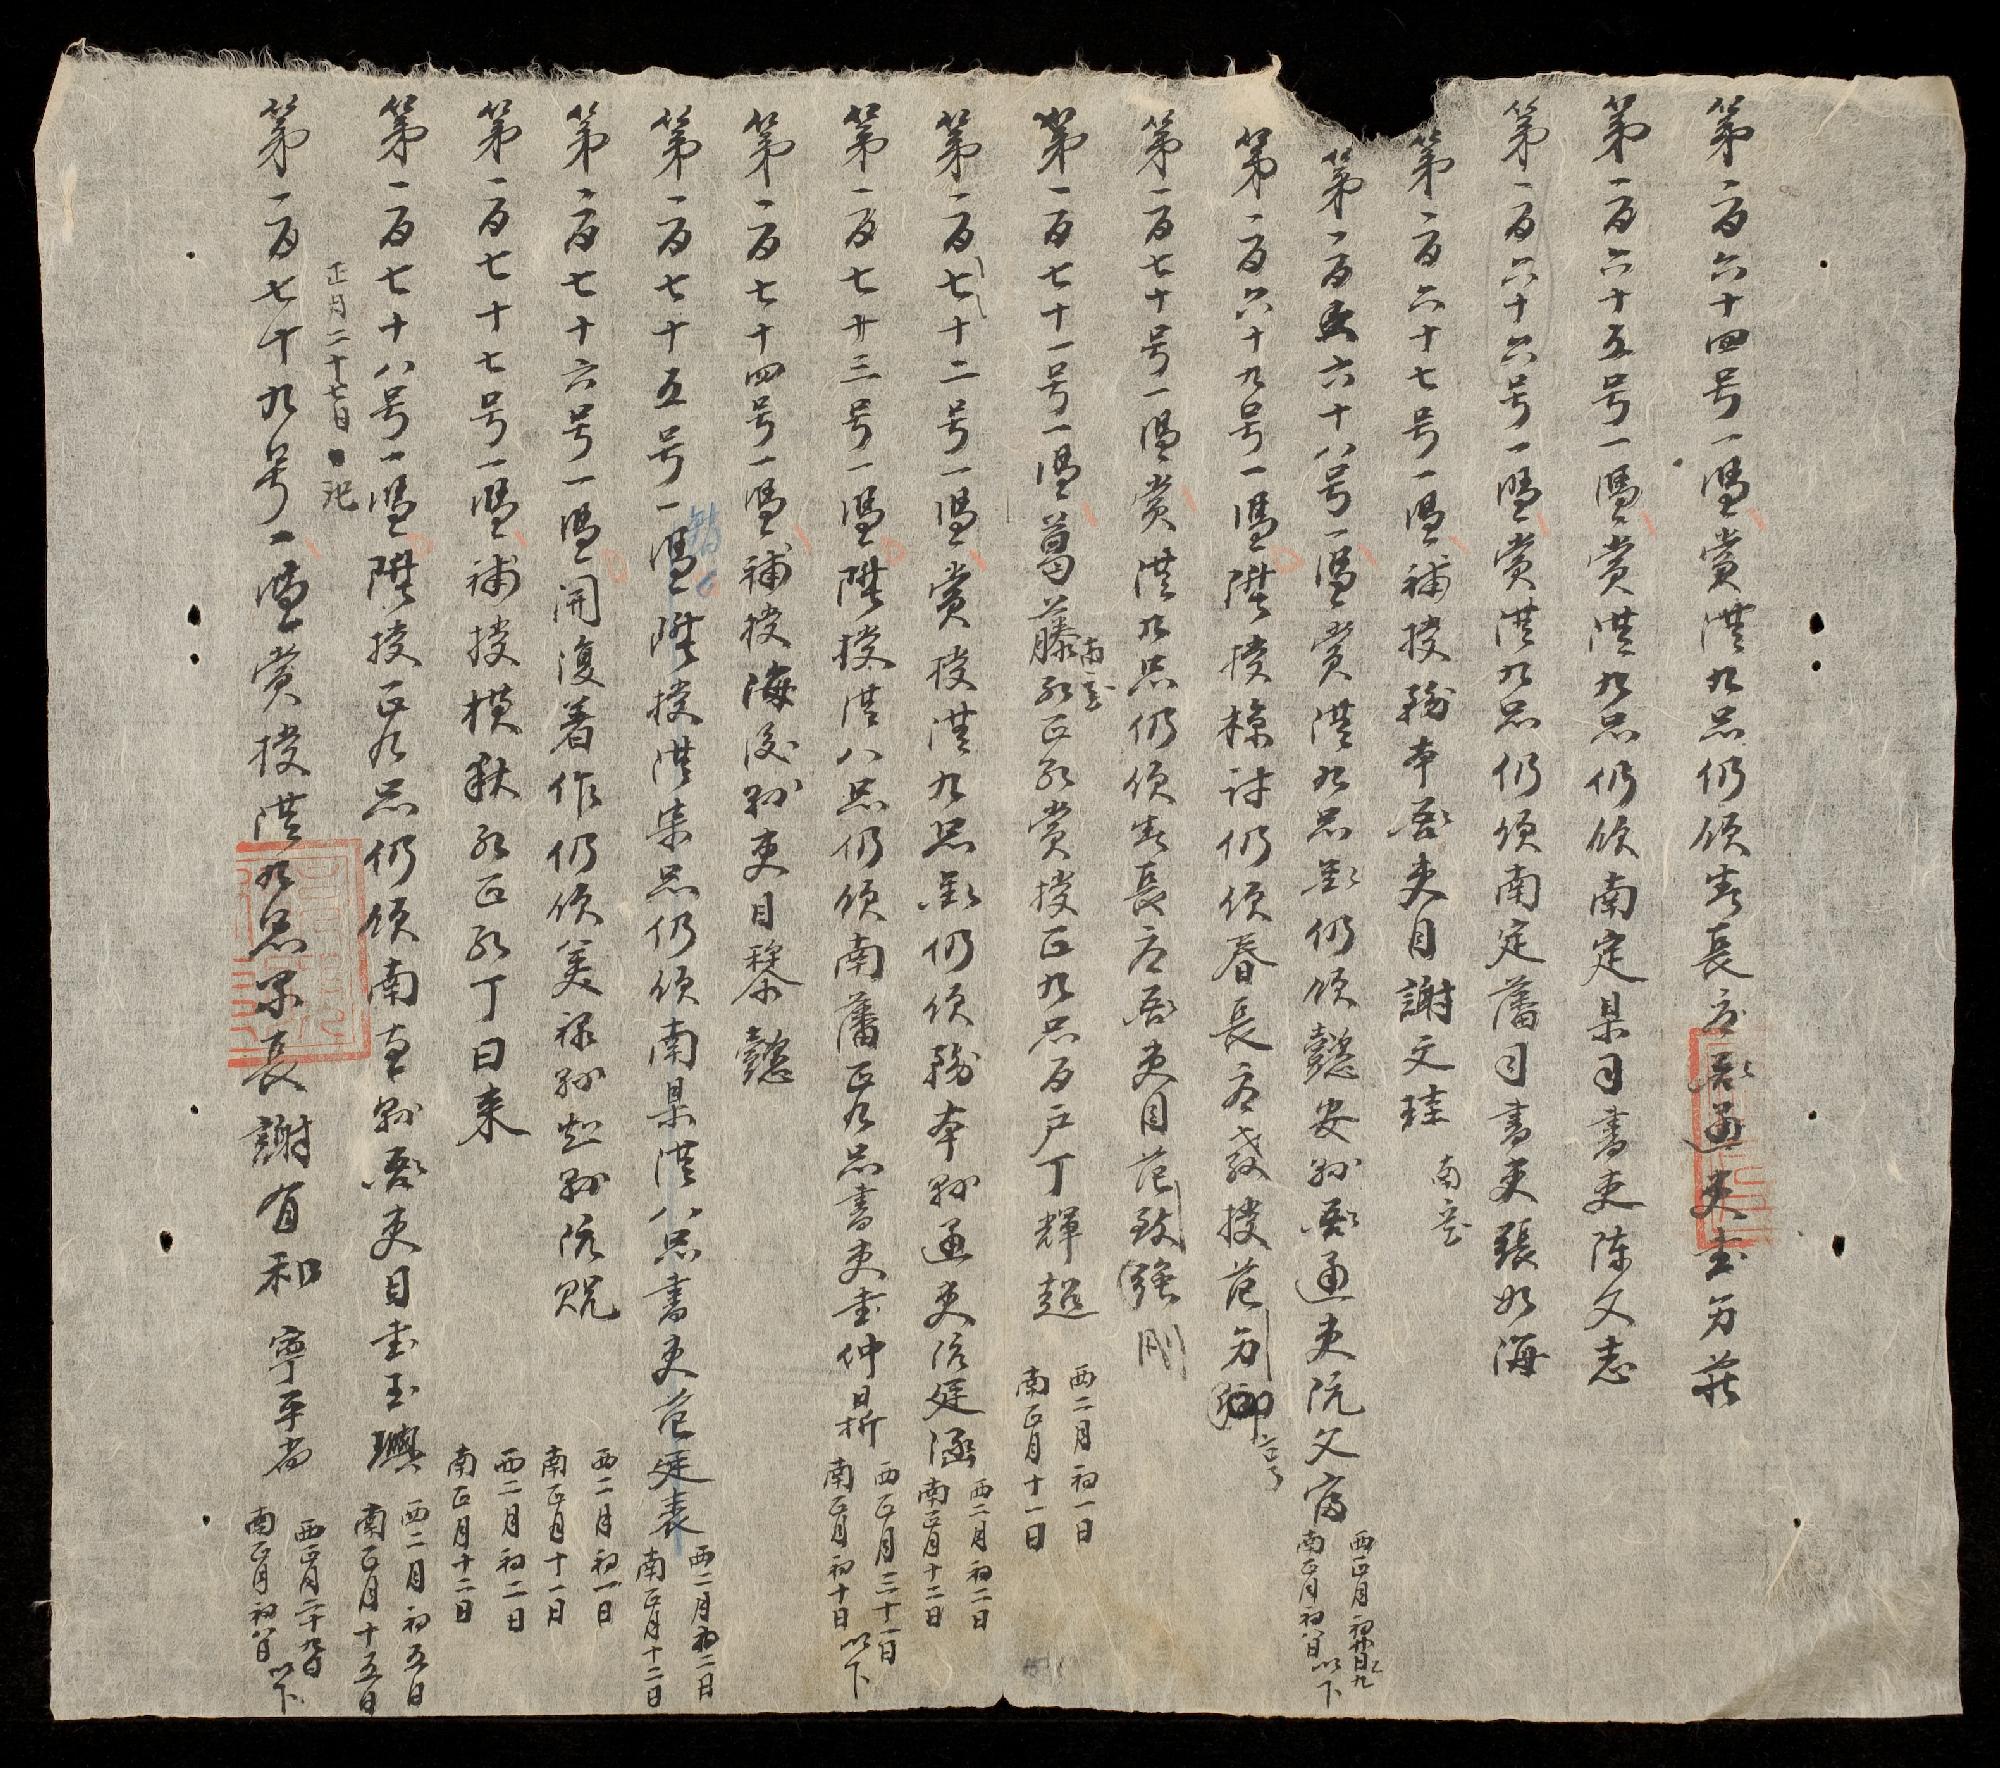 第一百六十四号一凴賞洪九品仍領春長府房通吏黃芳莊
第一百六十五号一凴賞洪九品仍領南定臬司書吏陳文志
第一百六十六号一凴賞洪九品仍領南定藩司書吏張如海
第一百六十七号一凴補授務本房吏目謝文珪 南定
第一百六十八号一凴賞洪九品仍領懿安縣房通吏阮文富
西正月初 日 以下
南正月初 日
第一百六十九号一凴陞授檢討仍領春長府教授范芳卿
第一百七十号一凴賞洪九品仍領春長府房吏目范致強 剛
第一百七十一号一凴葛藤 正 賞授正九品百户丁輝超
南定
西二月初一日
南正月十一日
第一百七十二号一凴賞授洪九品仍領務本縣通吏阮廷涵
西二月初二日
南正月十二日
第一百七十三号一凴陞授洪八品仍領南藩正九品書吏黃仲
西正月三十一日 以下
南正月初十日
第一百七十四号一凴補授海後縣吏目黎懿
第一百七十五号一凴陞授洪 品仍領南臬洪八品書吏范廷表
西二月初二日
南正月十二日
第一百七十六号一凴開復著作仍領美祿縣知縣阮 
西二月初一日
南正月十一日
第一百七十七号一凴補授 正 丁曰来
西二月初二日
南正月十二日
第一百七十八号一凴陞授正九品仍領南直縣房吏目黃玉璵
西二月初五日
南正月十五日
正月二十七日 記
第一百七十九号一凴賞授洪九品 長謝有和 寧平省
西正月二十九日 以下
南正月初八日